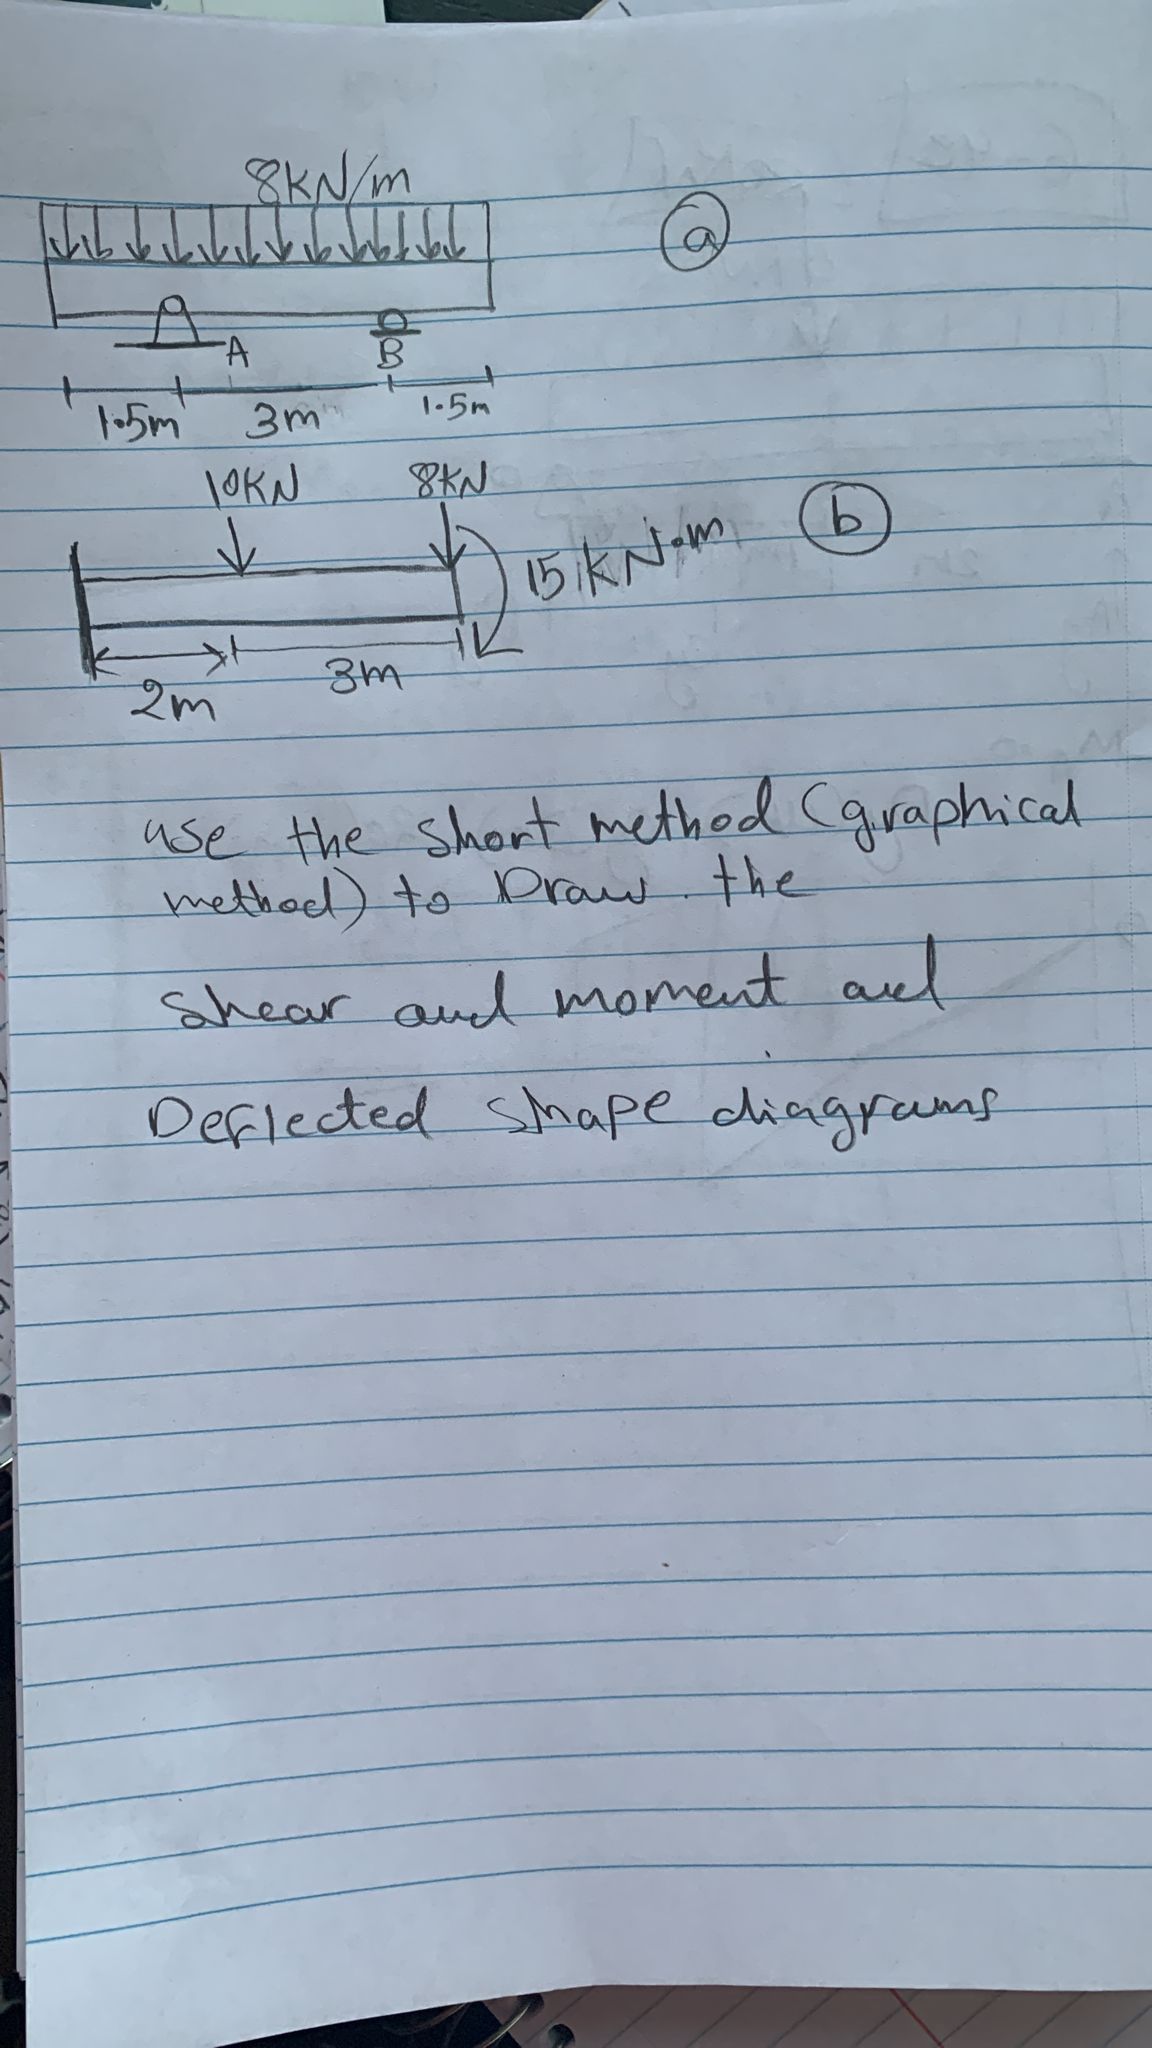 8kN/m
a
A
B
1.5m 3m 1.5m
10KN 8KN
b
15 kN.m
2m 3m
use the short method (graphical
method) to Draw the
shear and moment and
Deflected shape diagrams